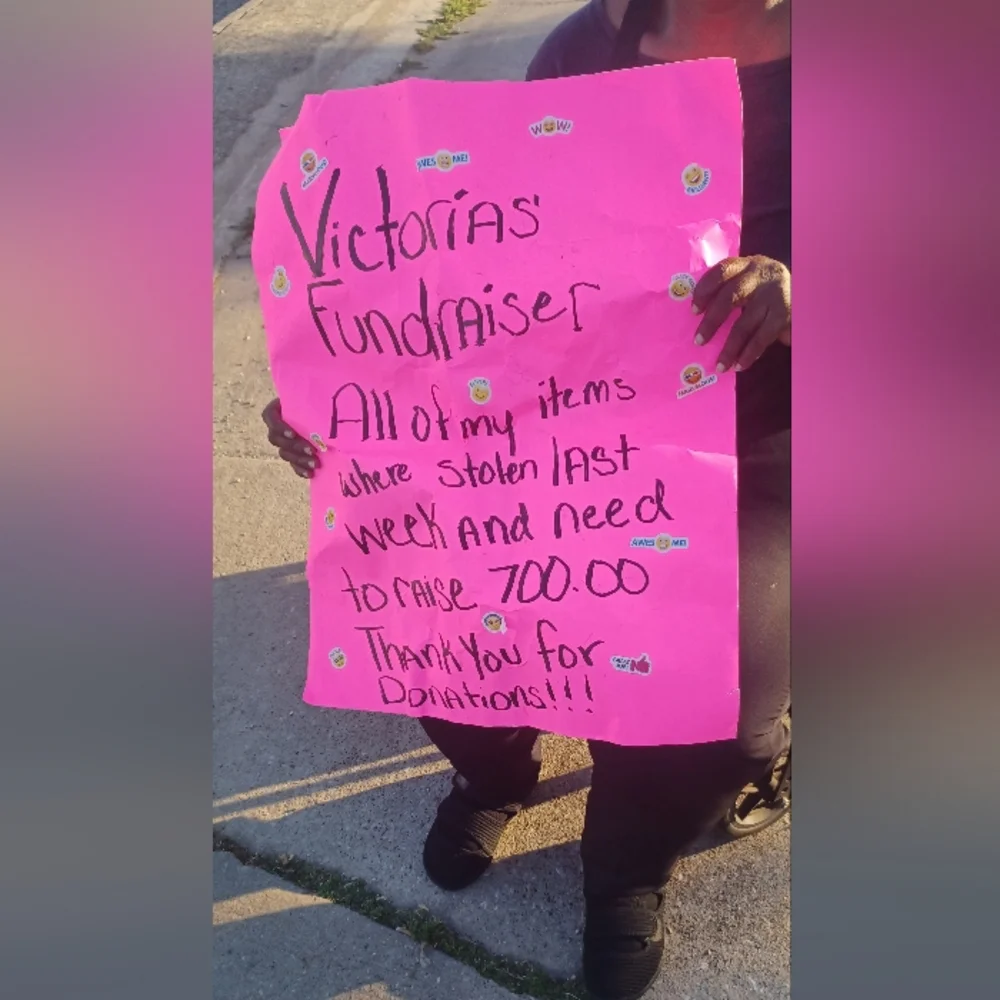 WOW!
AWESOME!
VictoriAs'
FundrAiser
All of my items
where stolen lAst
week And need
AWES ME!
to rAise 700.00
ThAnk You for
DonAtions!!!